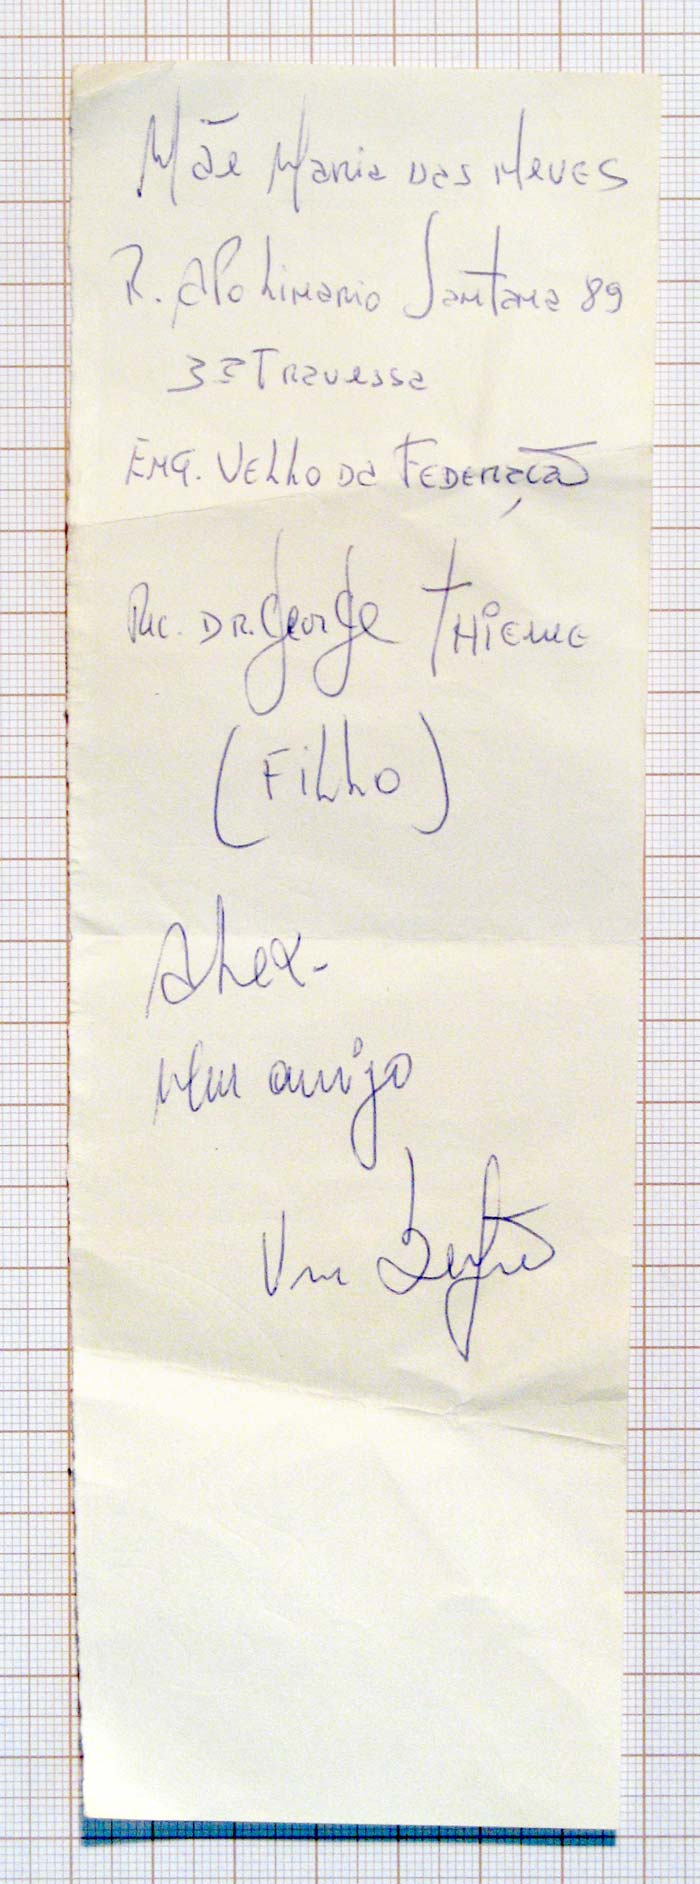 Mãe Maria das Neves
R. Apolinario Santana 89
3ª Travessa
Eng. Velho da Federação
Dr. George Thieme
(Filho)
Alex-
Meu amigo